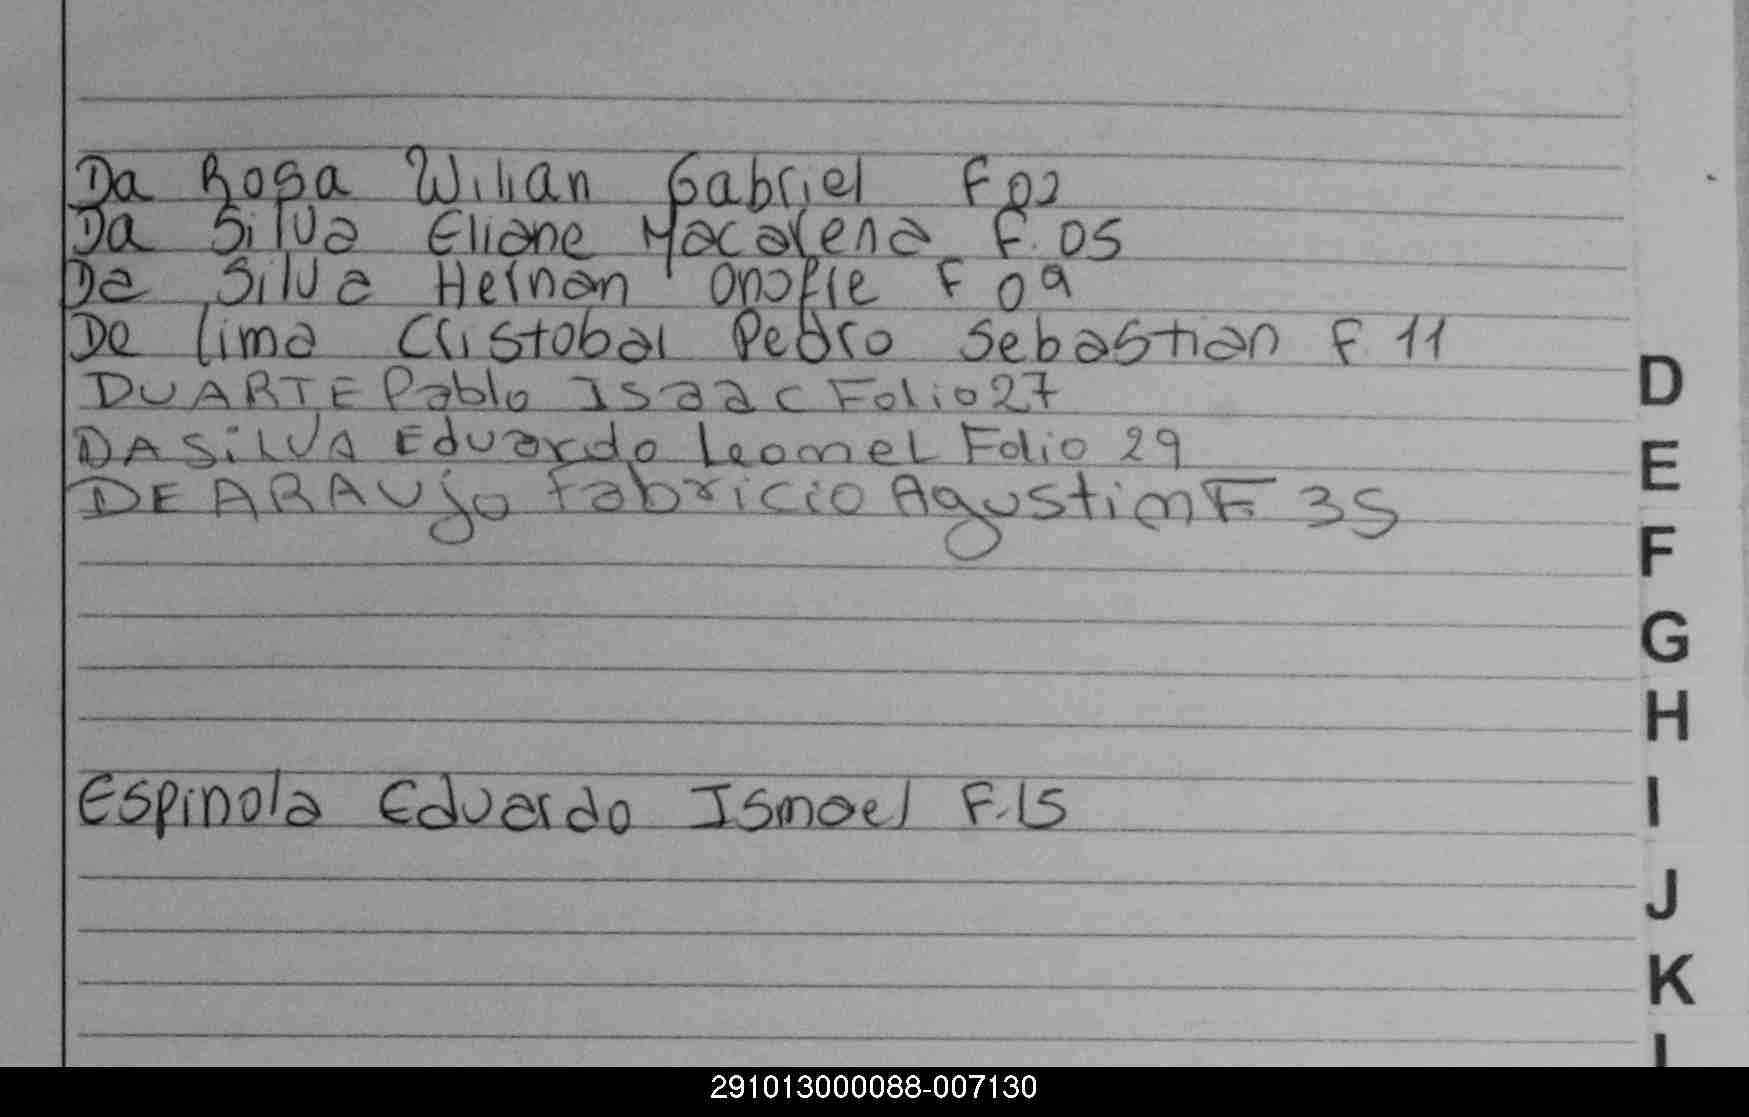 Da Rosa Wilian Gabriel F 02
Da Silva Eliane Macarena F. 05
Da Silva Hernan Onofre F 09
De lima Cristobal Pedro Sebastian F. 11
DUARTE Pablo Isaac Folio 27
DA SILVA Eduardo Leonel Folio 29
DE ARAUjo Fabricio Agustin F. 35
Espinola Eduardo Ismael F. 15
D
E
F
G
H
I
J
K
291013000088-007130